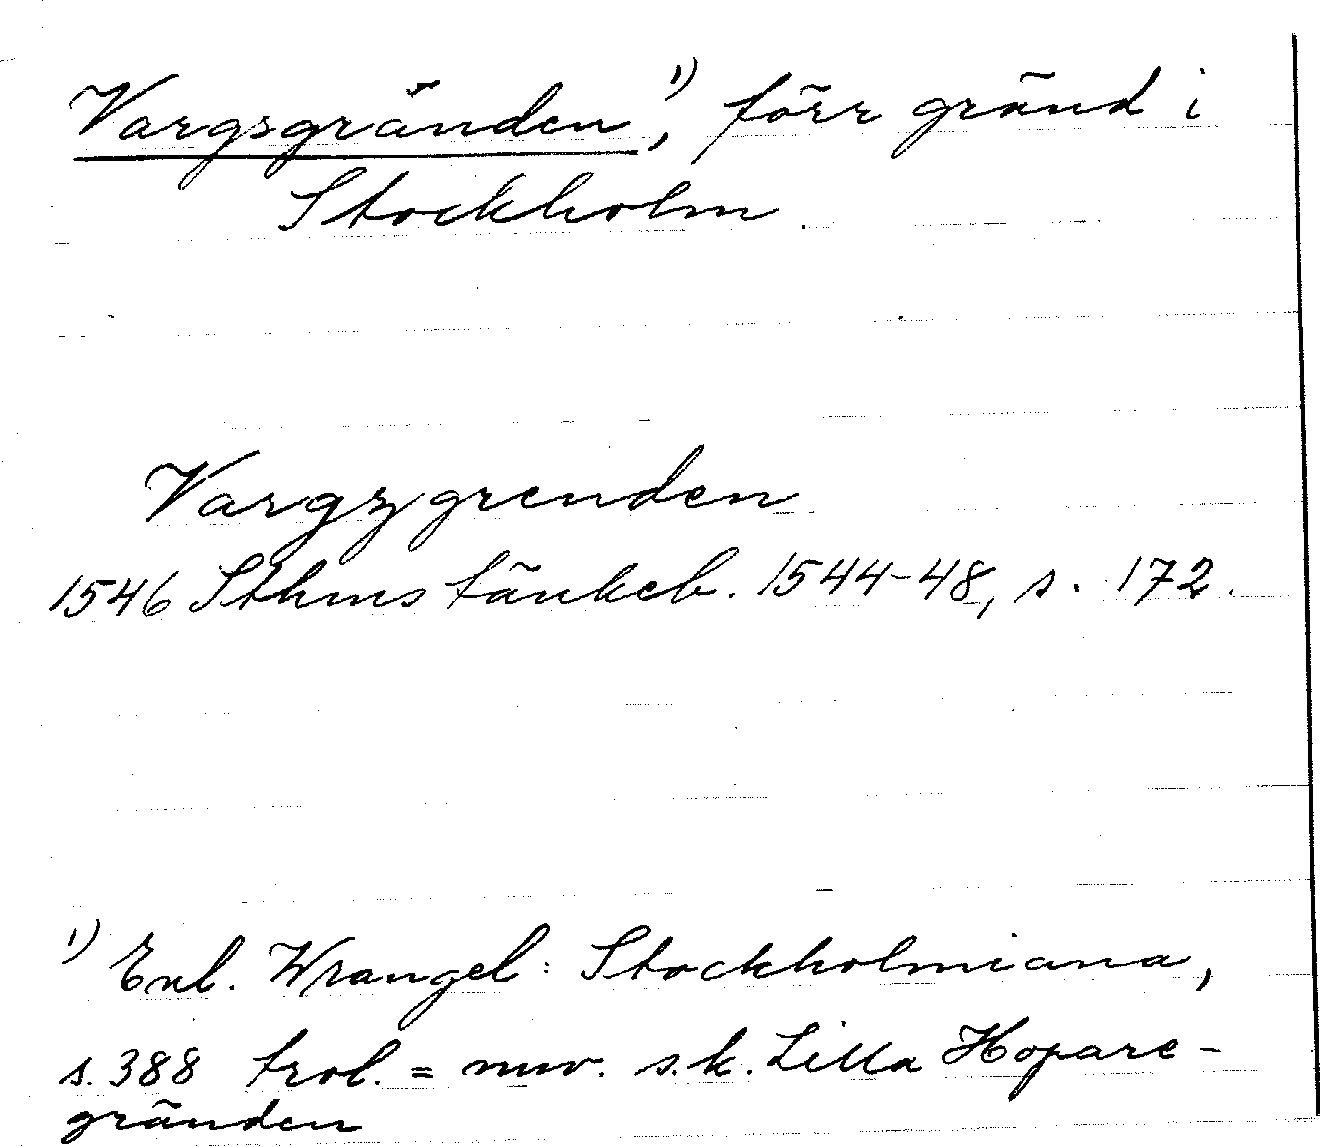 Vargsgränden¹⁾, förr gränd i
Stockholm
Vargzgrenden
1546 Sthms tänkeb. 1544-48, s. 172.
¹⁾ Enl. Wrangel: Stockholmiana,
s. 388 trol. = nuv. s.k. Lilla Hopare-
gränden